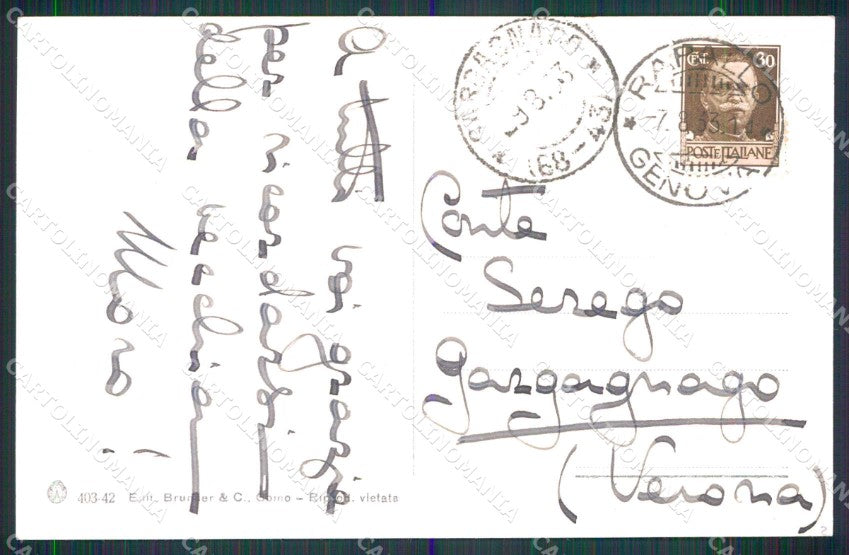 A tutti voi grazie
per ricordarvi
della vecchia
Mara
GARGAGNAGO
9.8.33
(68-43)
RAPALLO
7.8.33.14
GENOVA
CENT. 30
POSTE ITALIANE
Conte
Serego
Gargagnago
(Verona)
403-42 Edit. Brunner & C., Como - Riprod. vietata
CARTOLINOMANIA